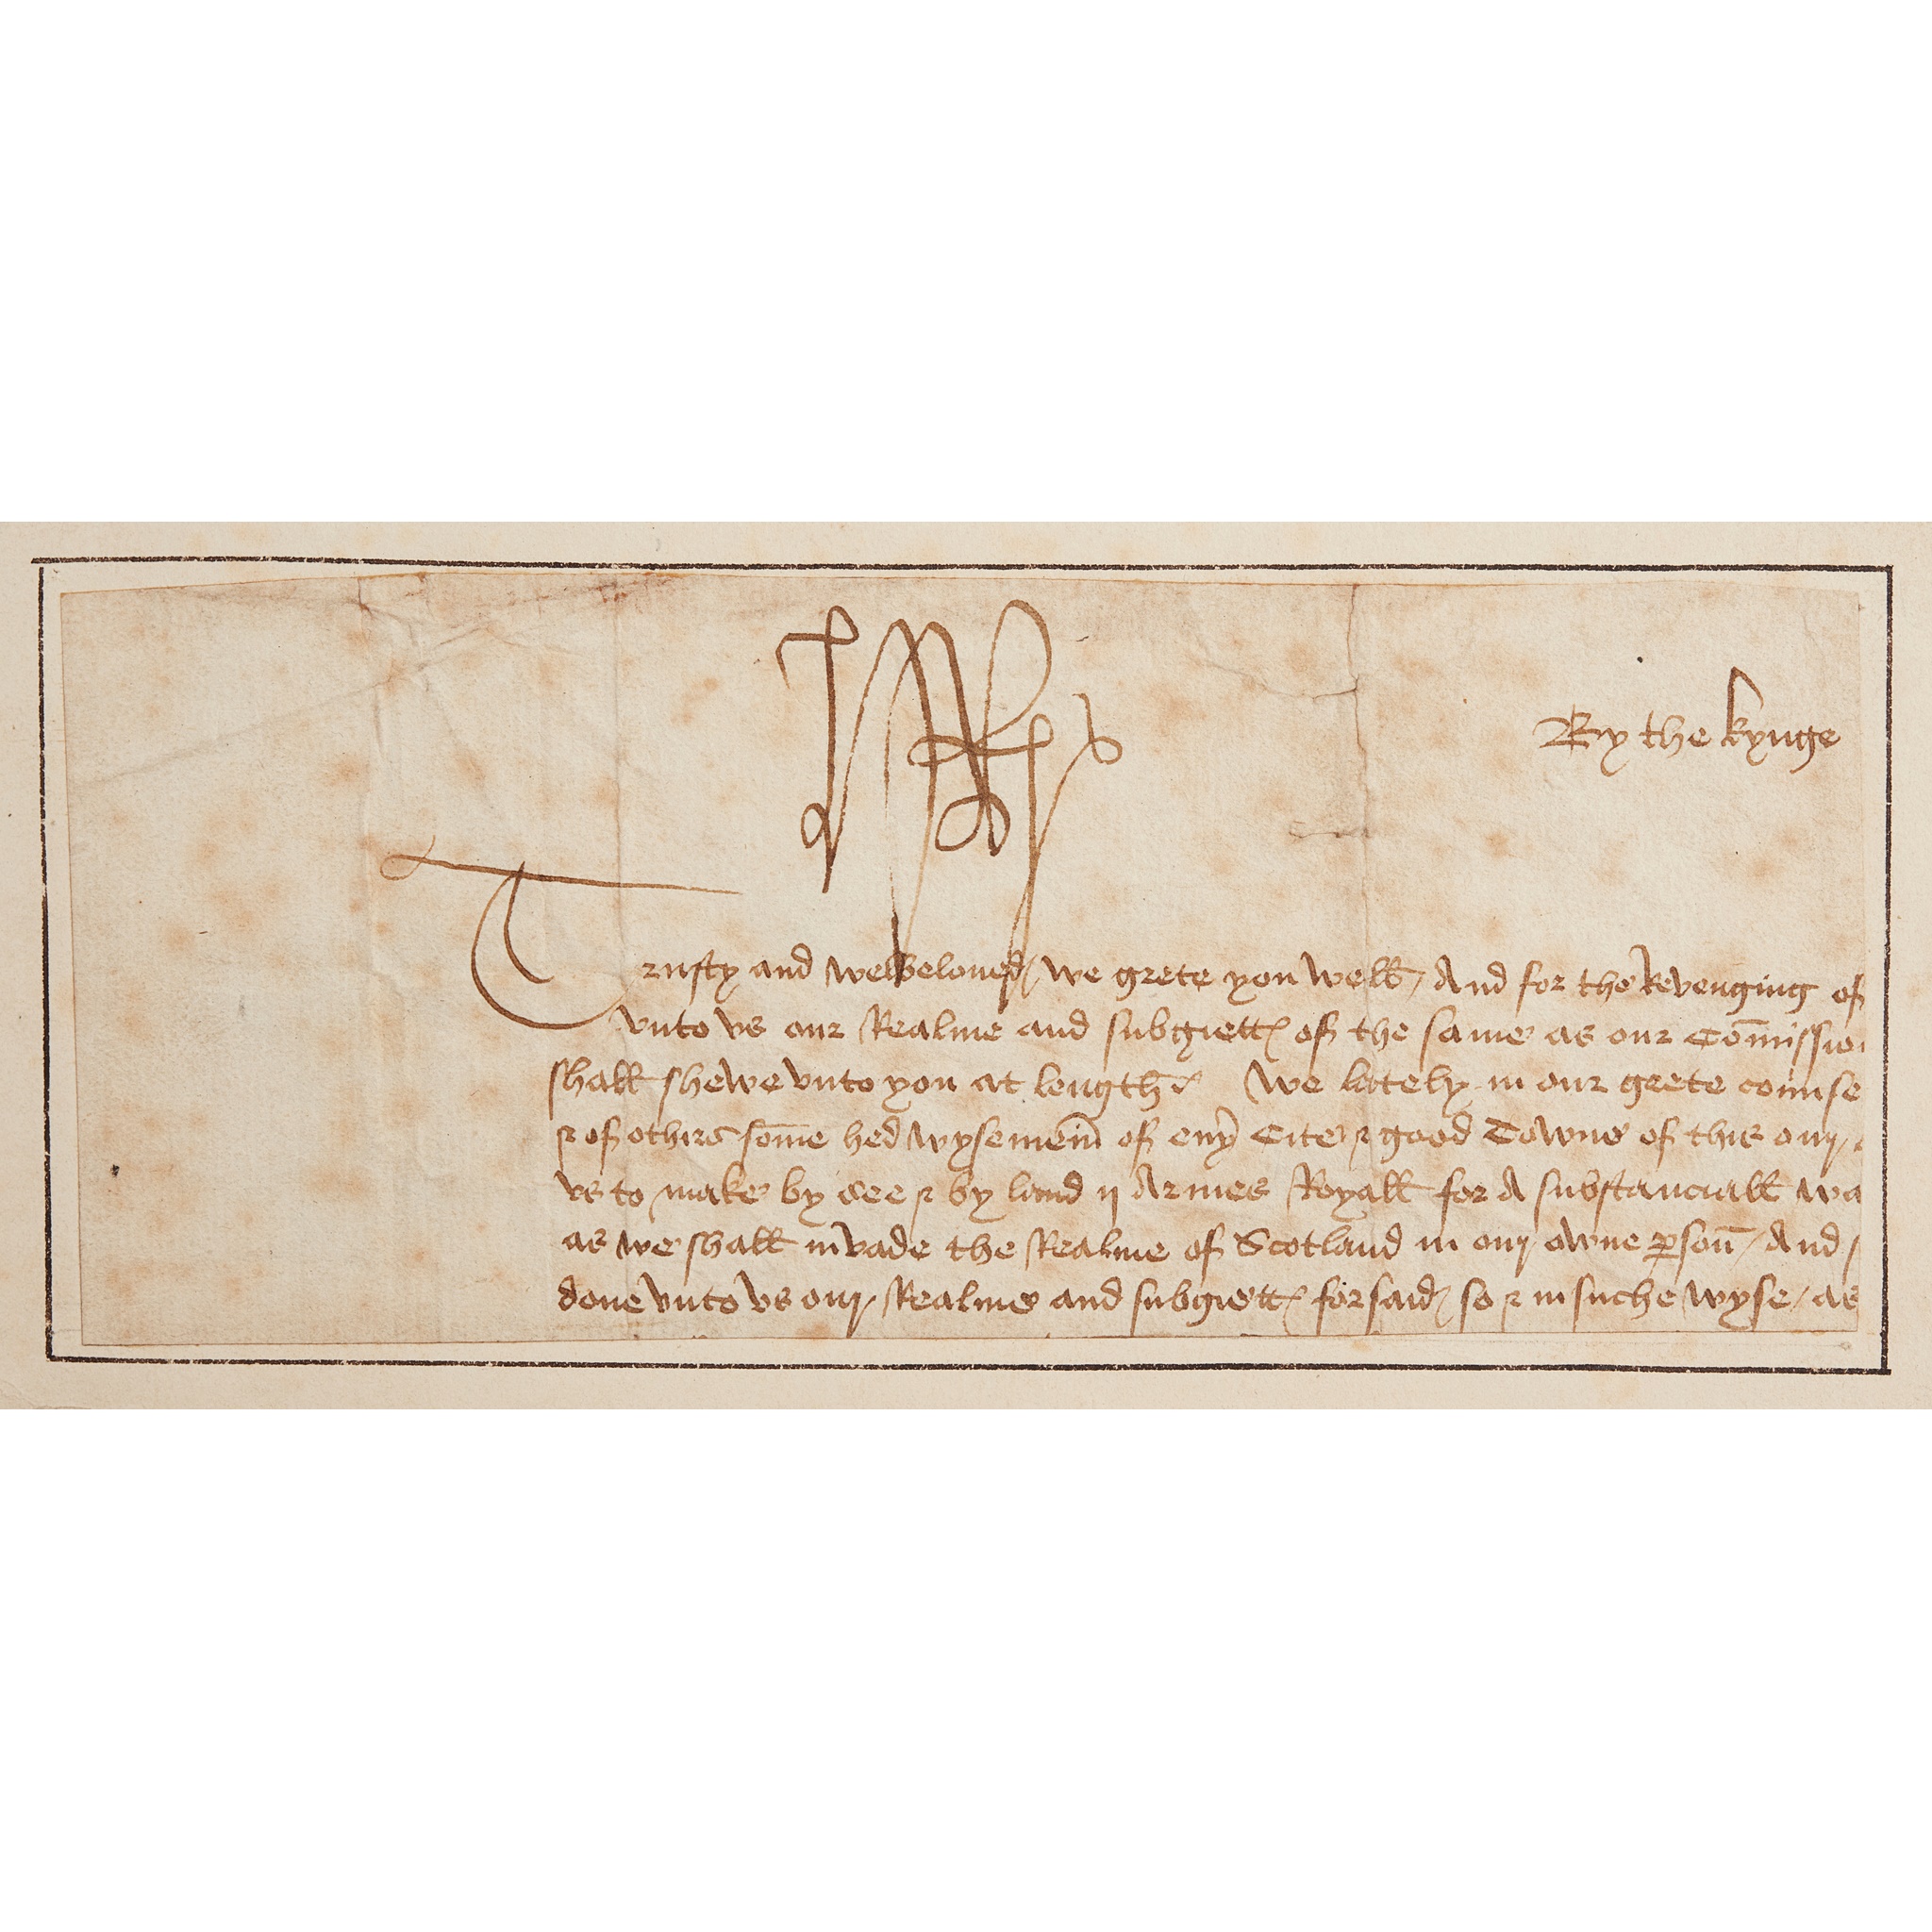 By the kynge
Trusty and welbeloued / we grete you well / And for the Revenging of
vnto vs our Realme and subgiett of the same as our Comission
shall shewe vnto you at length We lately in our grete counse
& of othirs some hed wysemenn of eny Cite & good Towne of this our
vs to make by see & by land ij Armes Royall for A substanciall wa
as we shall invade the Realme of Scotland in our owne pson / And
done vnto vs our Realme and subgiett forsaid so & in suche wyse / as